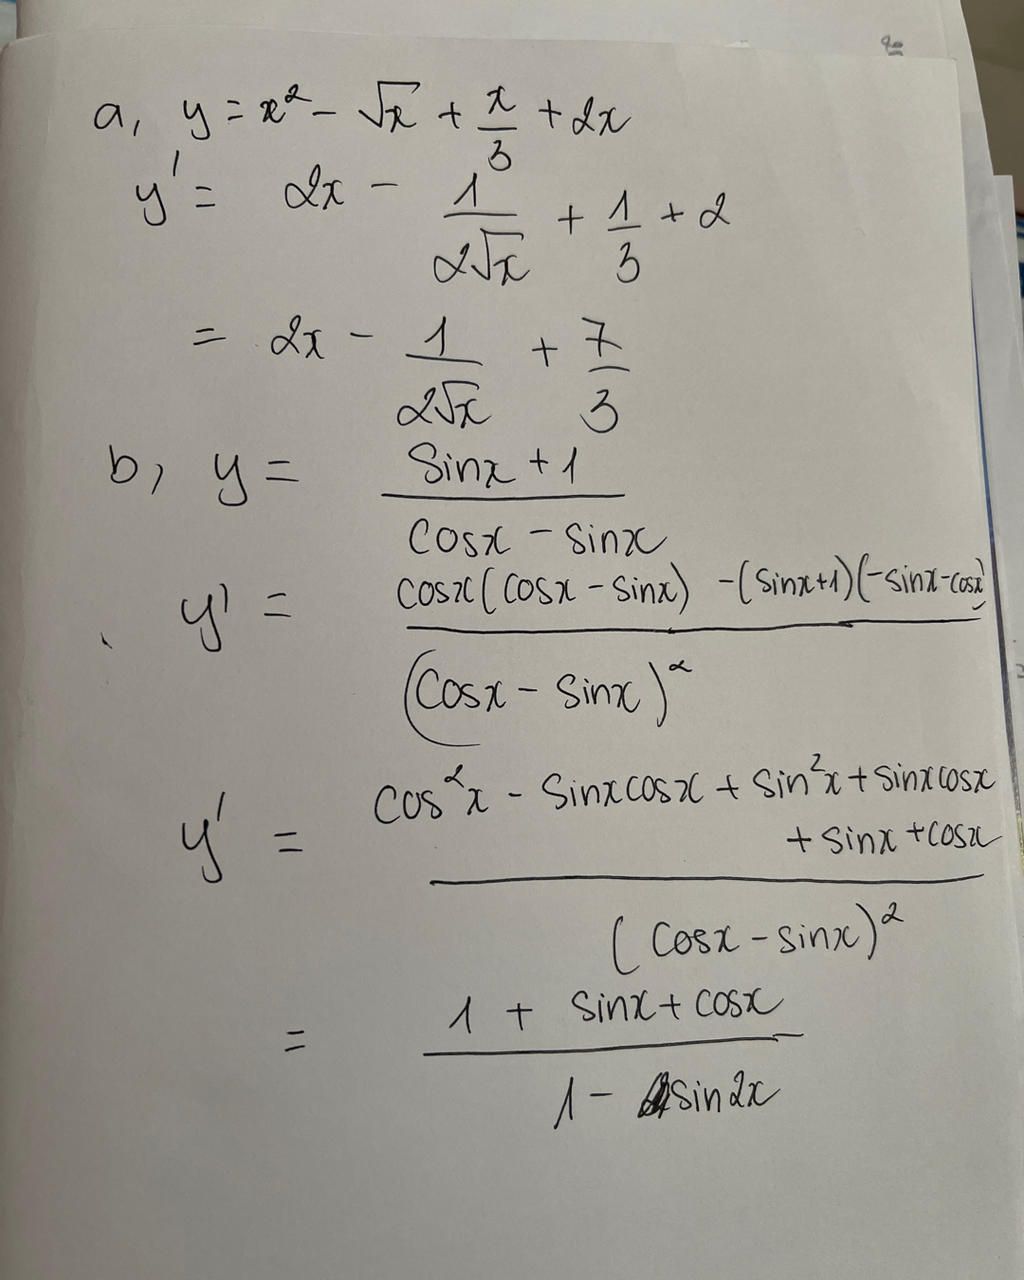 a, y = x² - √x + x/3 + 2x
y' = 2x - 1/(2√x) + 1/3 + 2
= 2x - 1/(2√x) + 7/3
b, y = (sinx + 1)/(cosx - sinx)
y' = (cosx(cosx - sinx) -(sinx+1)(-sinx-cosx))/(cosx - sinx)²
y' = (cos²x - sinxcosx + sin²x + sinxcosx + sinx + cosx)/(cosx - sinx)²
= (1 + sinx + cosx)/(1 - sin2x)